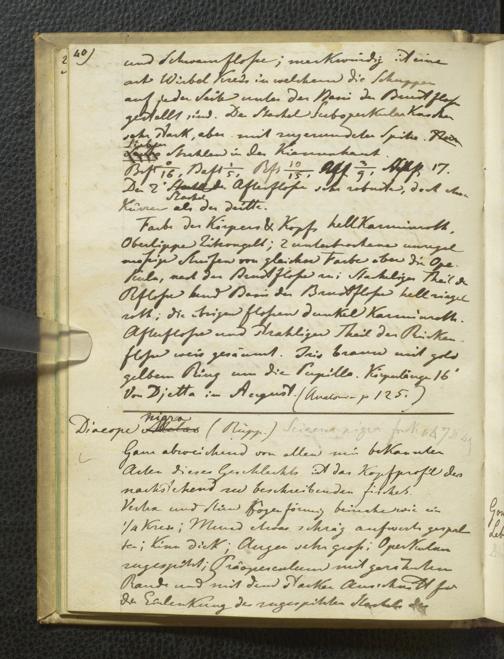 40)
und Schwanzflosse; merkwürdig ist eine
art Wirbel Kreis in welchem die Schuppen
auf jeder Seite unter der Basis der Brustfloss
gestellt sind. Der Stachel Suboperkular Knochen
sehr stark, aber mit zugerundeter Spitze.
Sieben
Strahlen in der Kiemenhaut.
Brf 0/16, Bauf 1/5, Rf 10/15, Aff 3/9, 17.
Der 2te Stachel der Afterflosse sehr robuster, doch etwas
kürzer als der dritte.
Farbe des Körpers & Kopfs hell Karminroth,
Oberlippe Zitrongelb; 2 unterbrochene unregel
mäßige Streifen von gleicher Farbe über die Ope-
kula, nach der Brustflosse zu; Stachliger Theil der
Rflosse und Basis der Brustflosse hell ziegel
roth; die übrigen flossen dunkel Karminroth.
Afterflosse und strahliger Theil der Rücken-
flosse weis gesäumt. Iris braun mit gold
gelbem Ring um die Pupille. Körperlänge 16"
Von Djetta im August. (Anatomie p 125.)
nigra
Diacope (Rüpp.) Sciaena nigra forsk
Ganz abweichend von allen mir bekannten
Arten dieses Geschlechts ist das Kopfprofil des
nachstehend zu beschreibenden fisches.
Vertex und Stirn Bogenförmig beinahe wie ein
1/4 Kreis; Mund etwas schräg aufwerts gespal-
ten; Kinn dick; Augen sehr groß; Operkulum
zugespitzt; Präoperculum mit gezähntem
Rande und mit dem starken Ausschnitt für
die Einlenkung des zugespitzten Stachels des